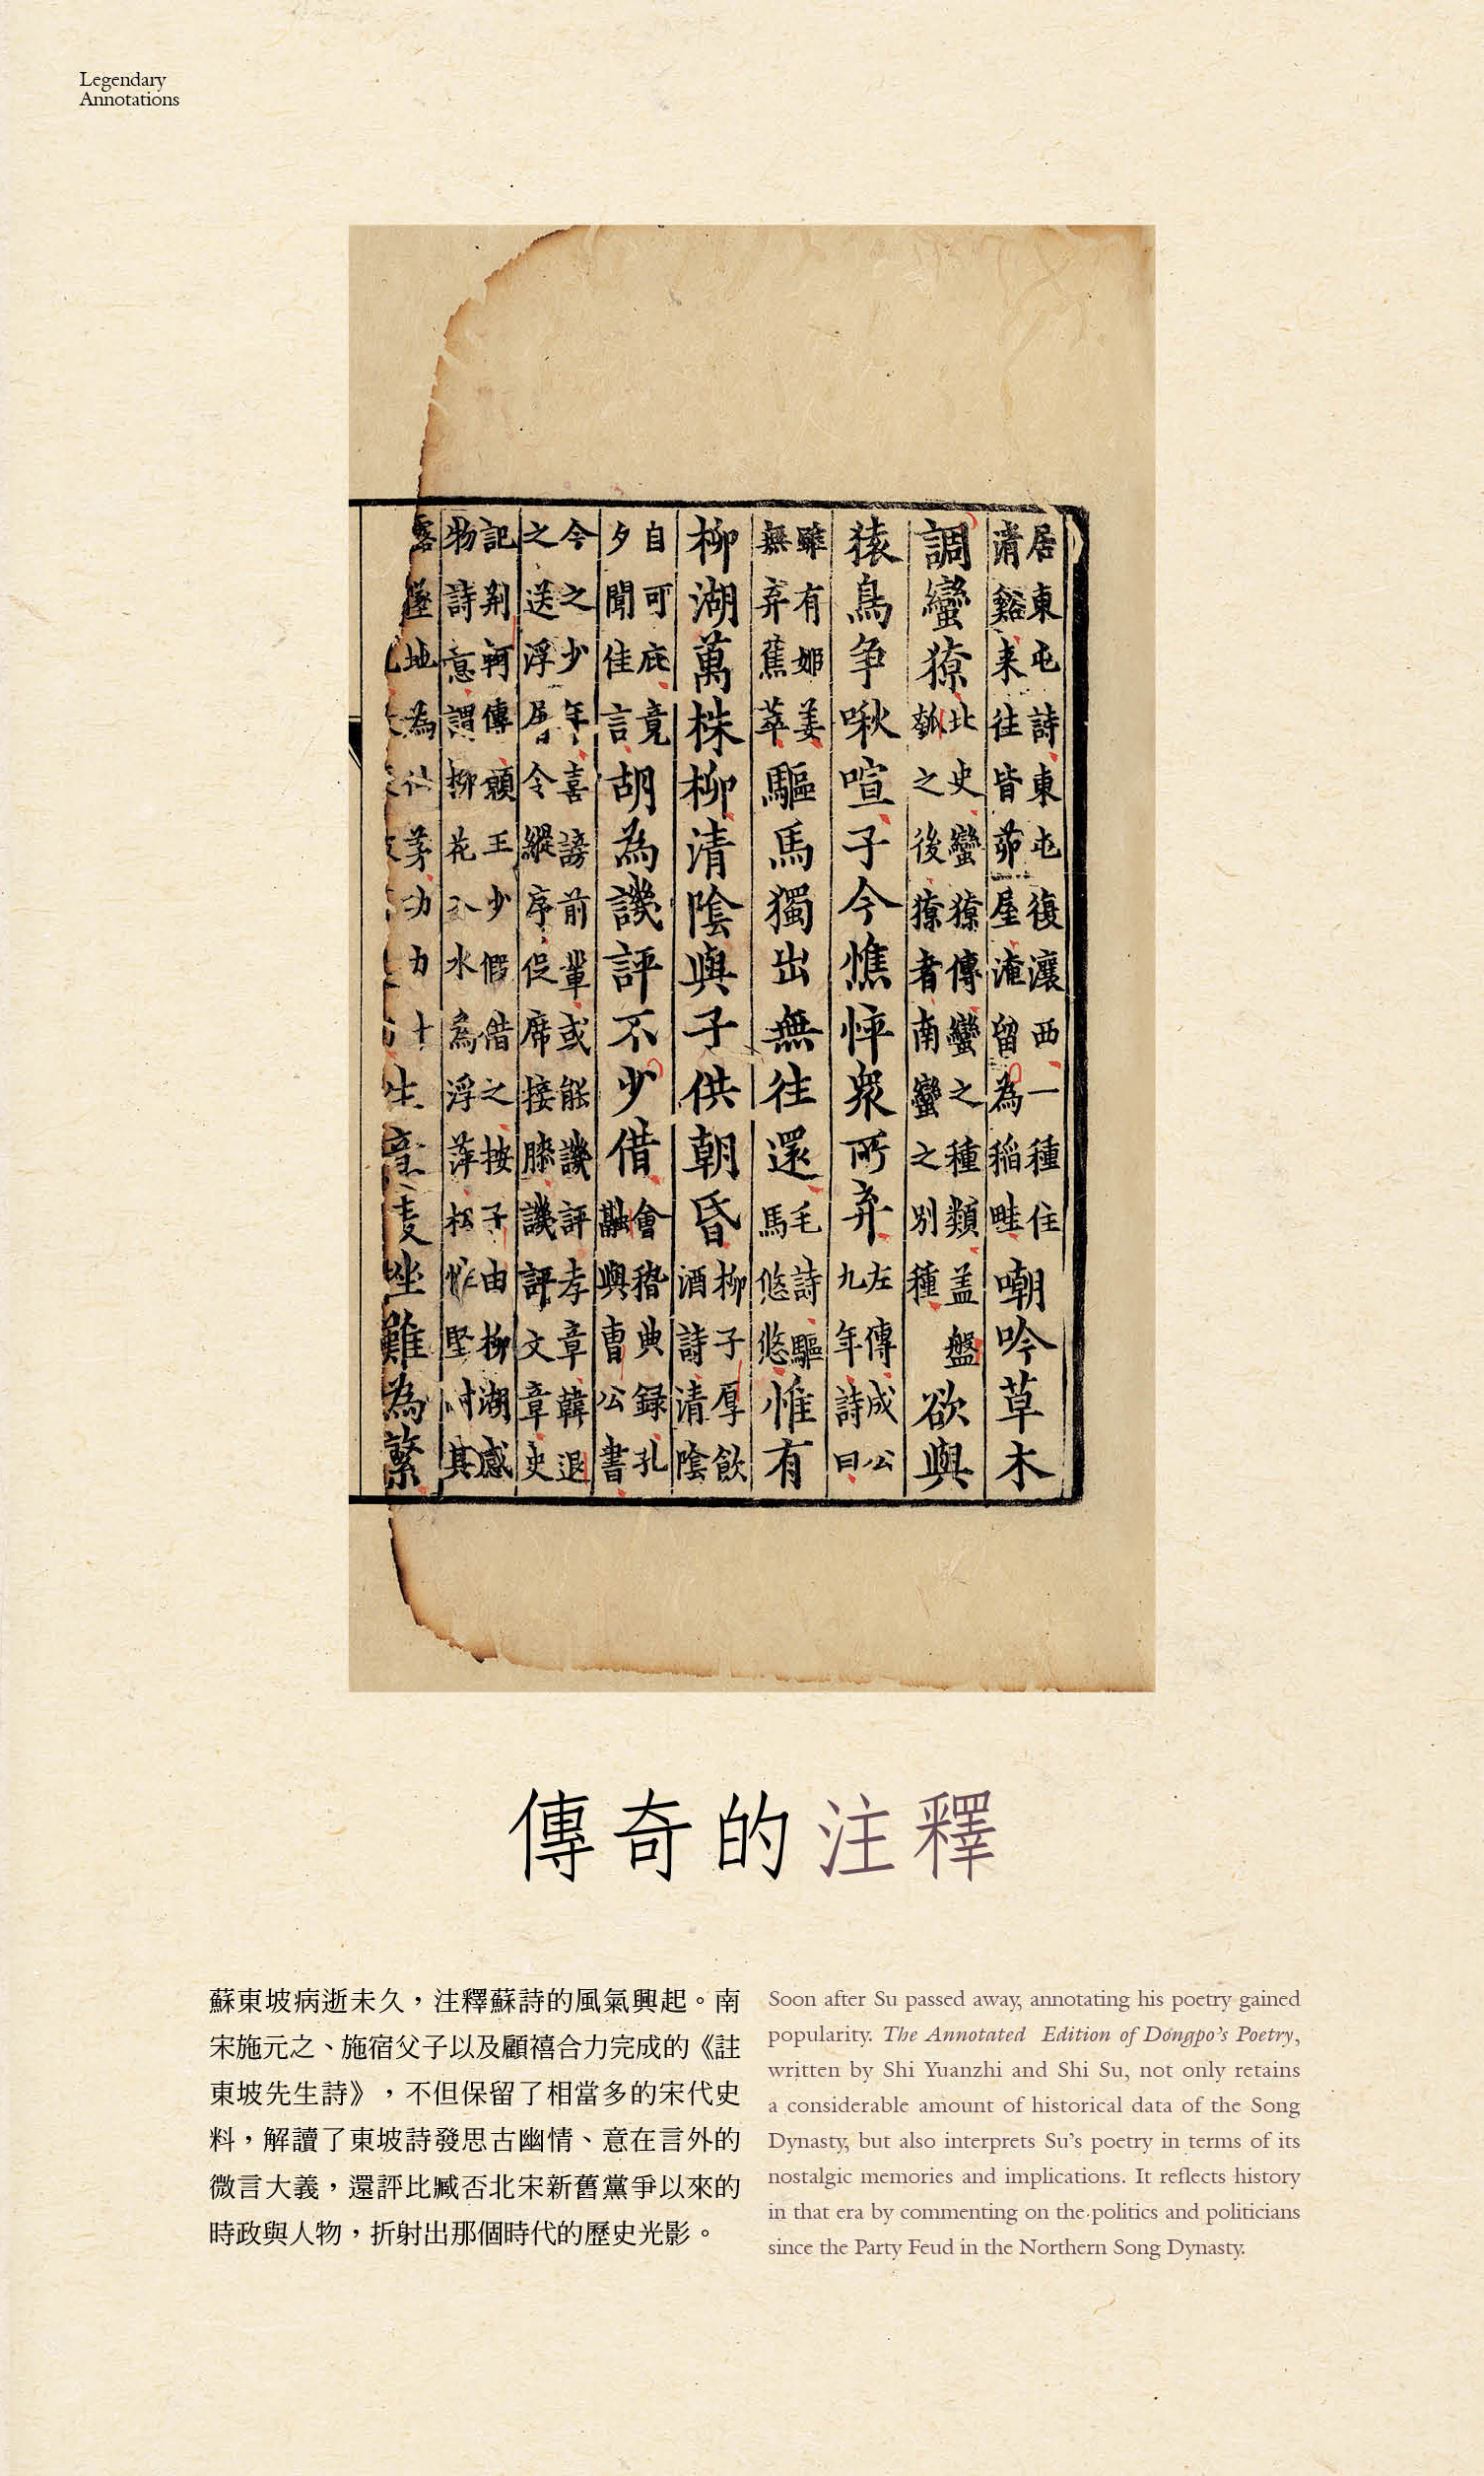 Legendary
Annotations
居東屯詩東屯復瀼西一種住
清谿来往皆茆屋淹留為稲畦
嘲吟草木
調蠻獠
北史蠻獠傳蠻之種類盖盤
瓠之後獠者南蠻之别種
欲與
猿鳥争啾喧子今憔悴衆所弃
左傳成公
九年詩曰
雖有姬姜
無弃蕉萃
驅馬獨出無往還
毛詩驅
馬悠悠
惟有
柳湖萬株柳清陰與子供朝昏
柳子厚飲
酒詩清陰
自可庇竟
夕聞佳言
胡為譏評不少借
會稽典録孔
融與曹公書
今之少年喜謗前輩或能譏評孝章韓退
之送浮屠令縱序促席接膝譏評文章史
記荆軻傳願王少假借之按子由柳湖感
物詩意謂柳花入水為浮萍松堅其
墜地為茅功力十
生坐難為繁
傳奇的注釋
蘇東坡病逝未久，注釋蘇詩的風氣興起。南
宋施元之、施宿父子以及顧禧合力完成的《註
東坡先生詩》，不但保留了相當多的宋代史
料，解讀了東坡詩發思古幽情、意在言外的
微言大義，還評比臧否北宋新舊黨爭以來的
時政與人物，折射出那個時代的歷史光影。
Soon after Su passed away, annotating his poetry gained
popularity. The Annotated Edition of Dongpo's Poetry,
written by Shi Yuanzhi and Shi Su, not only retains
a considerable amount of historical data of the Song
Dynasty, but also interprets Su's poetry in terms of its
nostalgic memories and implications. It reflects history
in that era by commenting on the politics and politicians
since the Party Feud in the Northern Song Dynasty.